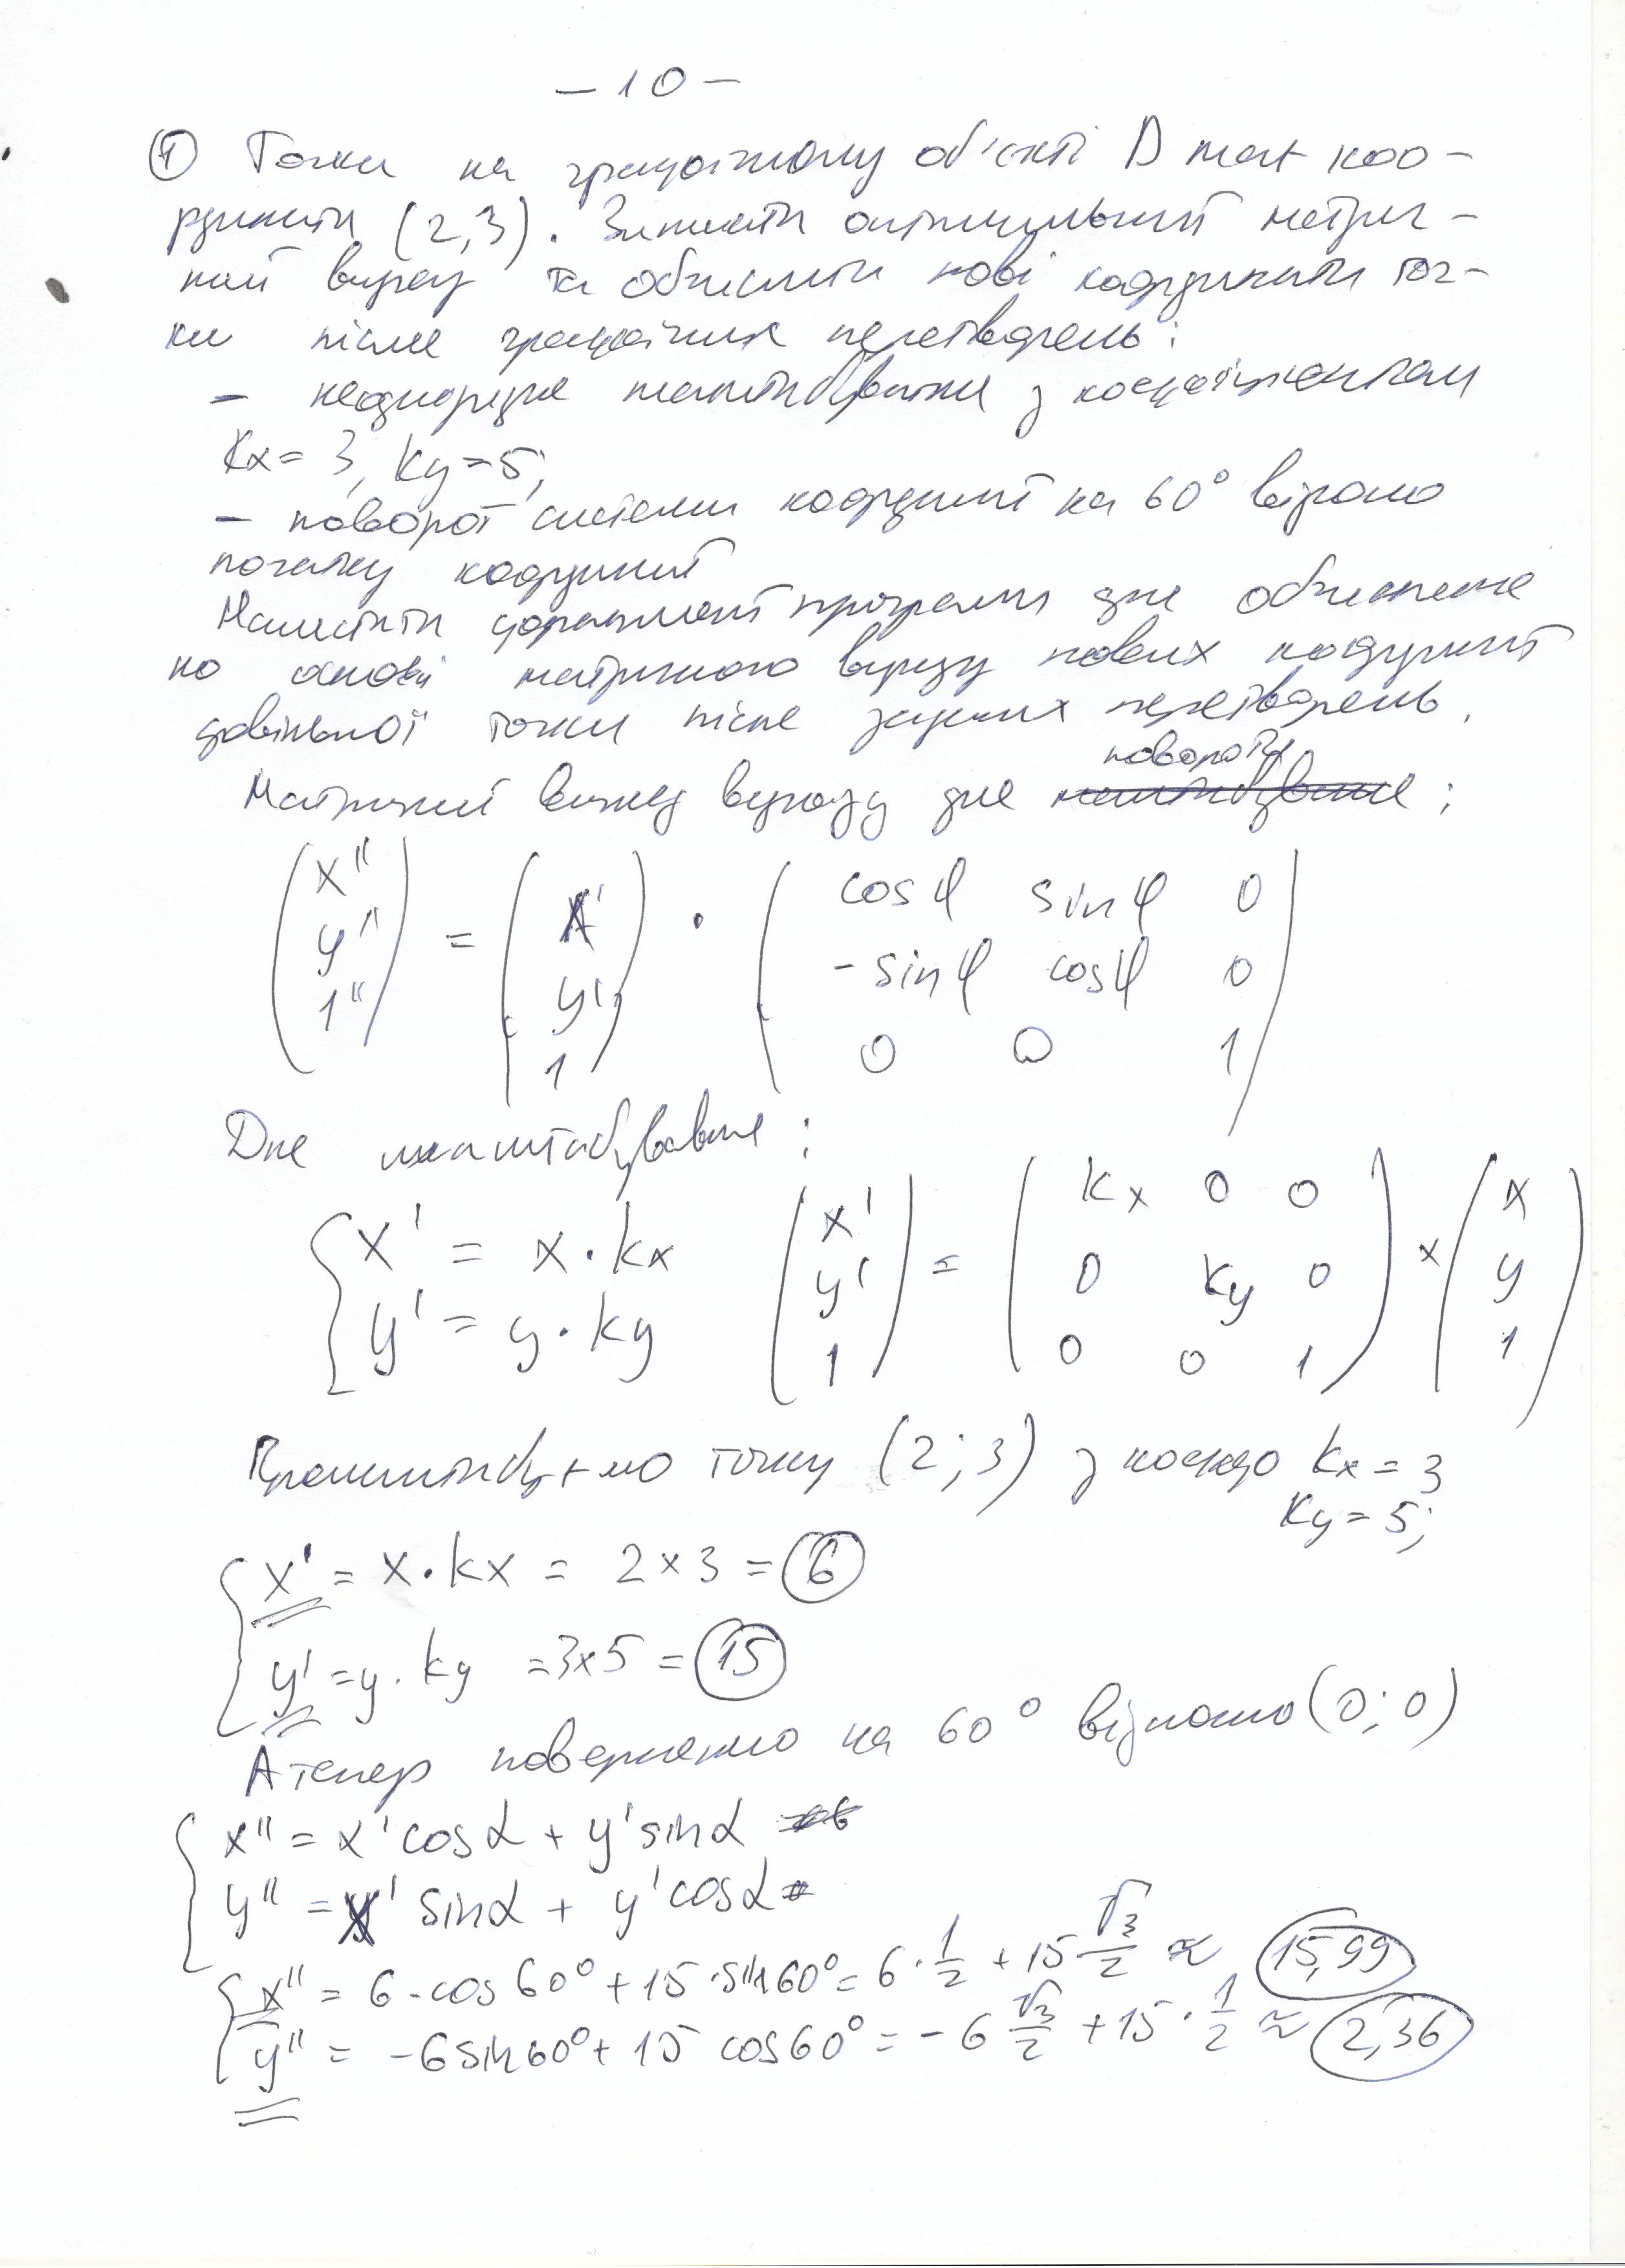 – 10 –
① Точка на графічному об'єкті D має коо-
рдинати (2,3). Записати оптимальний матрич-
ний вираз та обчислити нові координати точ-
ки після графічних перетворень:
– неоднорідне масштабування з коефіцієнтами
Kx = 3, Ky = 5;
– поворот системи координат на 60° відносно
початку координат
Написати фрагмент програми для обчислення
на основі матричного виразу нових координат
довільної точки після заданих перетворень.
повороту
Матричний вигляд виразу для масштабування :
(x'' y'' 1'') = (x' y' 1) · (cosφ sinφ 0
-sinφ cosφ 0
0 0 1)
Для масштабування :
{ x' = x · kx (x' y' 1) = (kx 0 0
y' = y · ky 0 ky 0
0 0 1) × (x y 1)
Промасштабуємо точку (2; 3) з коефіцо kx = 3
Ky = 5;
{ x' = x · kx = 2 × 3 = 6
y' = y · ky = 3×5 = 15
А тепер повернемо на 60° відносно (0; 0)
{ x'' = x' cosα + y' sinα
y'' = x' sinα + y' cosα
{ x'' = 6 · cos 60° + 15 · sin 60° = 6 · 1/2 + 15 √3/2 ≈ 15,99
y'' = -6 sin 60° + 15 cos 60° = -6 √3/2 + 15 · 1/2 ≈ 2,36